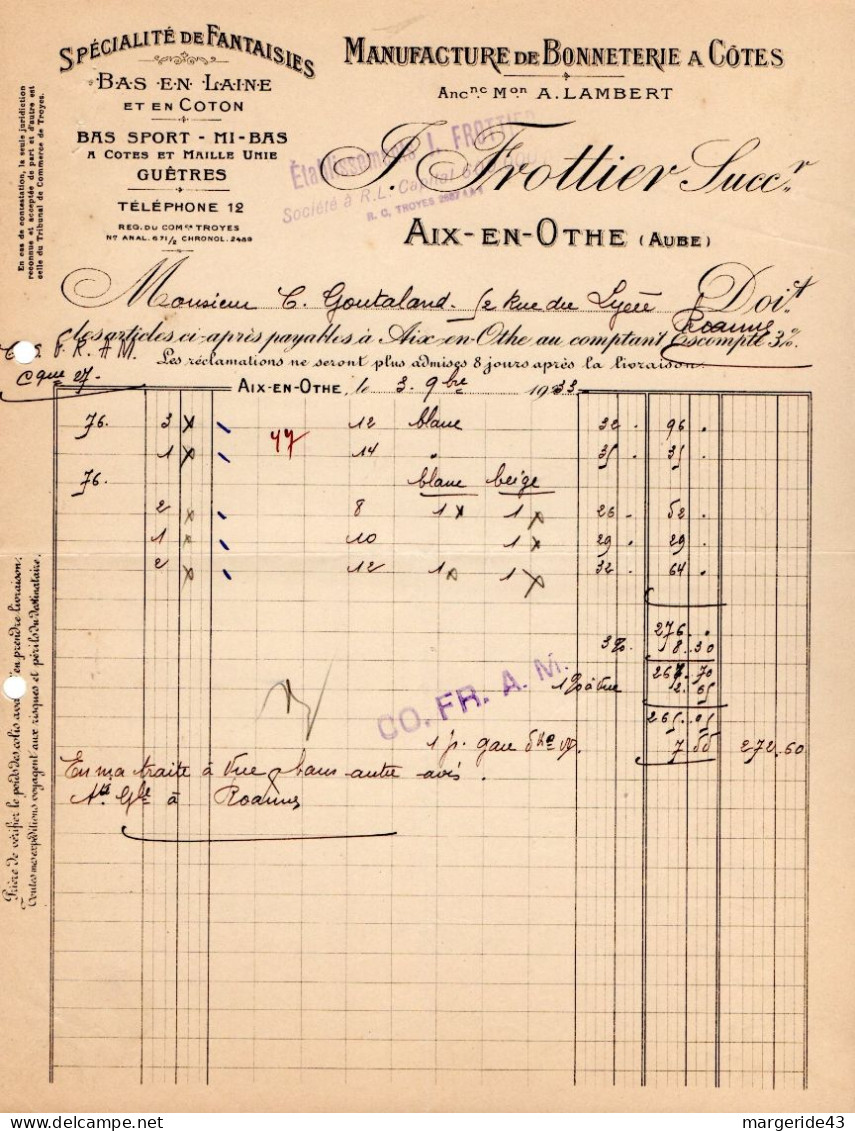 SPÉCIALITÉ DE FANTAISIES
BAS EN LAINE
ET EN COTON
BAS SPORT - MI-BAS
A COTES ET MAILLE UNIE
GUÊTRES
TÉLÉPHONE 12
REG. DU COMce TROYES
No ANAL. 671/2 CHRONOL. 2489
En cas de contestation, la seule juridiction
reconnue et acceptée de part et d'autre est
celle du Tribunal de Commerce de Troyes.
MANUFACTURE DE BONNETERIE A CÔTES
Ancnc Mon A. LAMBERT
Établissements I. FROTTIER
Société à R.L. Capital
R. C. TROYES
J. Frottier Succr
AIX-EN-OTHE (AUBE)
Monsieur C. Goutaland 2 Rue du Lycée Doit
Roanne
les articles ci-après payables à Aix-en-Othe au comptant Escompte 3%
F. R. A M.
Les réclamations ne seront plus admises 8 jours après la livraison.
Cque 27.
AIX-EN-OTHE, le 3. 9bre 1933
76. 3 x 12 blanc 32 . 96 .
47
1 x 14 " 35 . 35 .
76. blanc beige
2 x 8 1 x 1 x 26 . 52 .
1 x 10 1 x 29 . 29 .
2 x 12 1 x 1 x 32 . 64 .
276 .
3%. 8.30
267.70
1% à vue 2.65
CO. FR. A. M.
265.05
1 p. gare 7 55 272.60
En ma traite à vue sans autre avis.
Sté Gle à Roanne
Prière de vérifier le poids des colis avant d'en prendre livraison.
Toutes mes expéditions voyagent aux risques et périls du destinataire.
margeride43